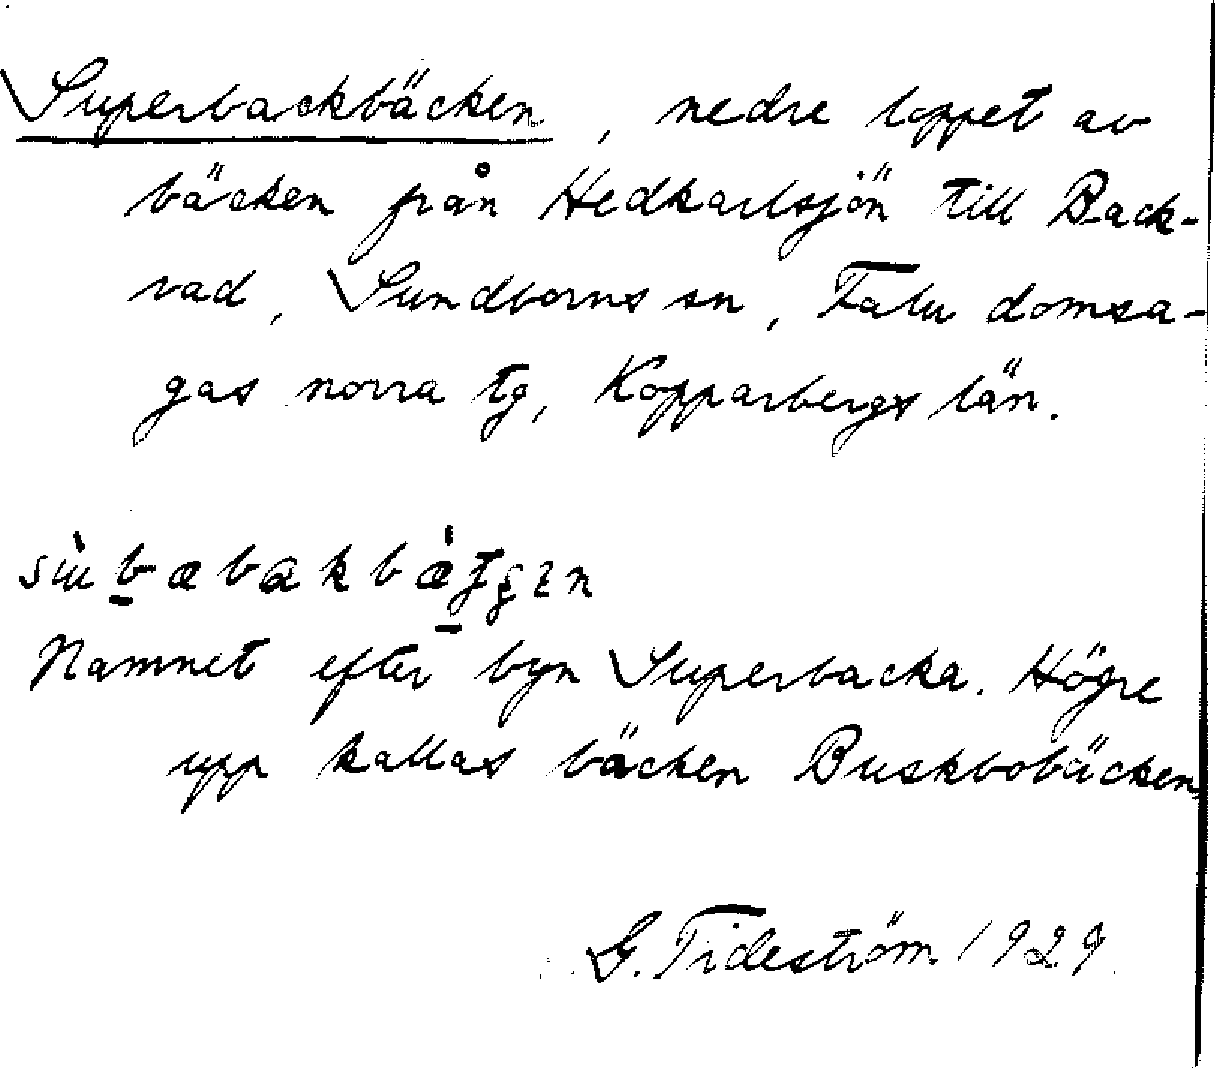 Superbackbäcken, nedre loppet av
bäcken från Hedkarlsjön till Back-
vad, Sundborns sn, Falu domsa-
gas norra tg, Kopparbergs län.
Namnet efter byn Superbacka. Högre
upp kallas bäcken Buskbobäcken.
G. Tideström 1929